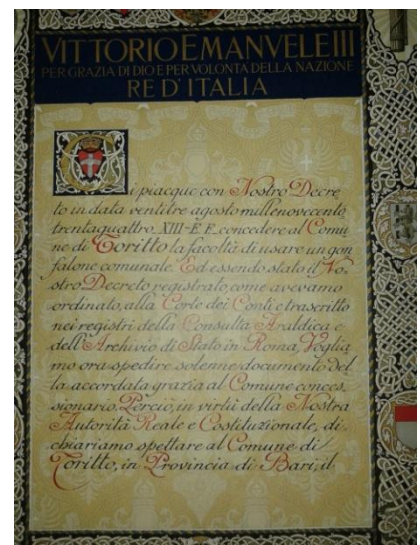 VITTORIO EMANVELE III
PER GRAZIA DI DIO E PER VOLONTA DELLA NAZIONE
RE D'ITALIA
Ci piacque con Nostro Decre
to in data ventitre agosto millenovecento
trentaquattro, XIII-E F. concedere al Comu
ne di Toritto la facoltà di usare un gon
falone comunale. Ed essendo stato il No
stro Decreto registrato, come avevamo
ordinato, alla Corte dei Conti e trascritto
nei registri della Consulta Araldica e
dell'Archivio di Stato in Roma, Voglia
mo ora spedire solenne documento del
la accordata grazia al Comune conces
sionario. Perciò, in virtù della Nostra
Autorità Reale e Costituzionale, di
chiariamo spettare al Comune di
Toritto, in Provincia di Bari, il